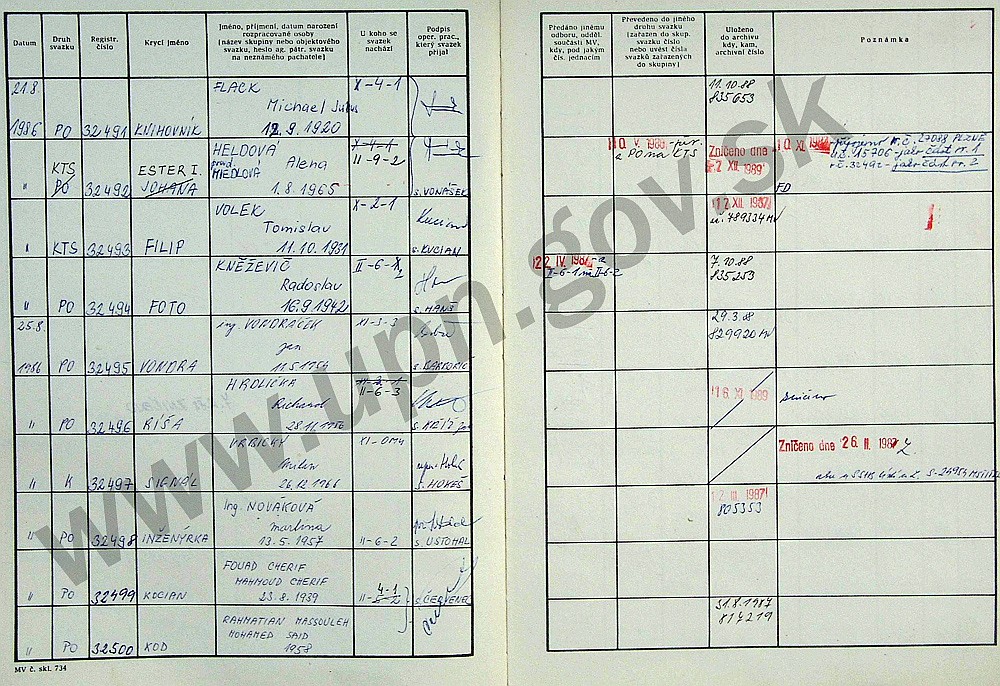 Datum
Druh svazku
Registr. číslo
Krycí jméno
Jméno, příjmení, datum narození rozpracované osoby
[název skupiny nebo objektového svazku, heslo ag. pátr. svazku na neznámého pachatele]
U koho se svazek nachází
Podpis oper. prac., který svazek přijal
Předáno jinému odboru, odděl. součásti MV, kdy, pod jakým čís. jednacím
Převedeno do jiného druhu svazku [zařazen do skup. svazku číslo nebo uvést čísla svazků zařazených do skupiny]
Uloženo do archivu kdy, kam, archivní číslo
Poznámka
21.8. 1986 PO 32491 KNIHOVNÍK
FLACK
Michael Julius
12.9.1920
X-4-1
11.10.88
835653
" KTS PO 32492 ESTER I. JOHANA
HELDOVÁ
prov. MIEDLOVÁ Alena
1.8.1965
X-4-1
II-9-2
s. VONÁŠEK
10. V. 1989
a PO na KTS
Zničeno dne
-2. XII. 1989
10. XI. 1987
FD
" KTS 32493 FILIP
VOLEK
Tomislav
11.10.1931
X-2-1
s. KUCIAN
12. XII. 1987
789334 MV
" PO 32494 FOTO
KNĚŽEVIČ
Radoslav
16.9.1942
s. HANŠ
22. IV. 1987
7.10.88
835253
25.8. 1986 PO 32495 VONDRA
ing. VONDRÁČEK
Jan
11.5.1954
XI-3-3
29.3.88
829920 MV
" PO 32496 RÍŠA
HRDLIČKA
Richard
28.11.1956
II-6-3
s. KRÍŽ
16. XI. 1989
zničeno
" K 32497 SIGNÁL
VRBICKÝ
Milan
26.12.1966
s. HOKEŠ
Zničeno dne 26. II. 1987
" PO 32498 INŽENÝRKA
Ing. NOVÁKOVÁ
Martina
13.5.1957
II-6-2
s. USTOHAL
12. III. 1987
805353
" PO 32499 KOCIAN
FOUAD CHERIF
MAHMOUD CHERIF
23.8.1939
4-1
II-5-2
s. ČERVENEC
" PO 32500 KOD
RAHMATIAN MASSOULEH
MOHAMED SAID
1958
31.8.1987
817219
MV č. skl. 734
www.upn.gov.sk